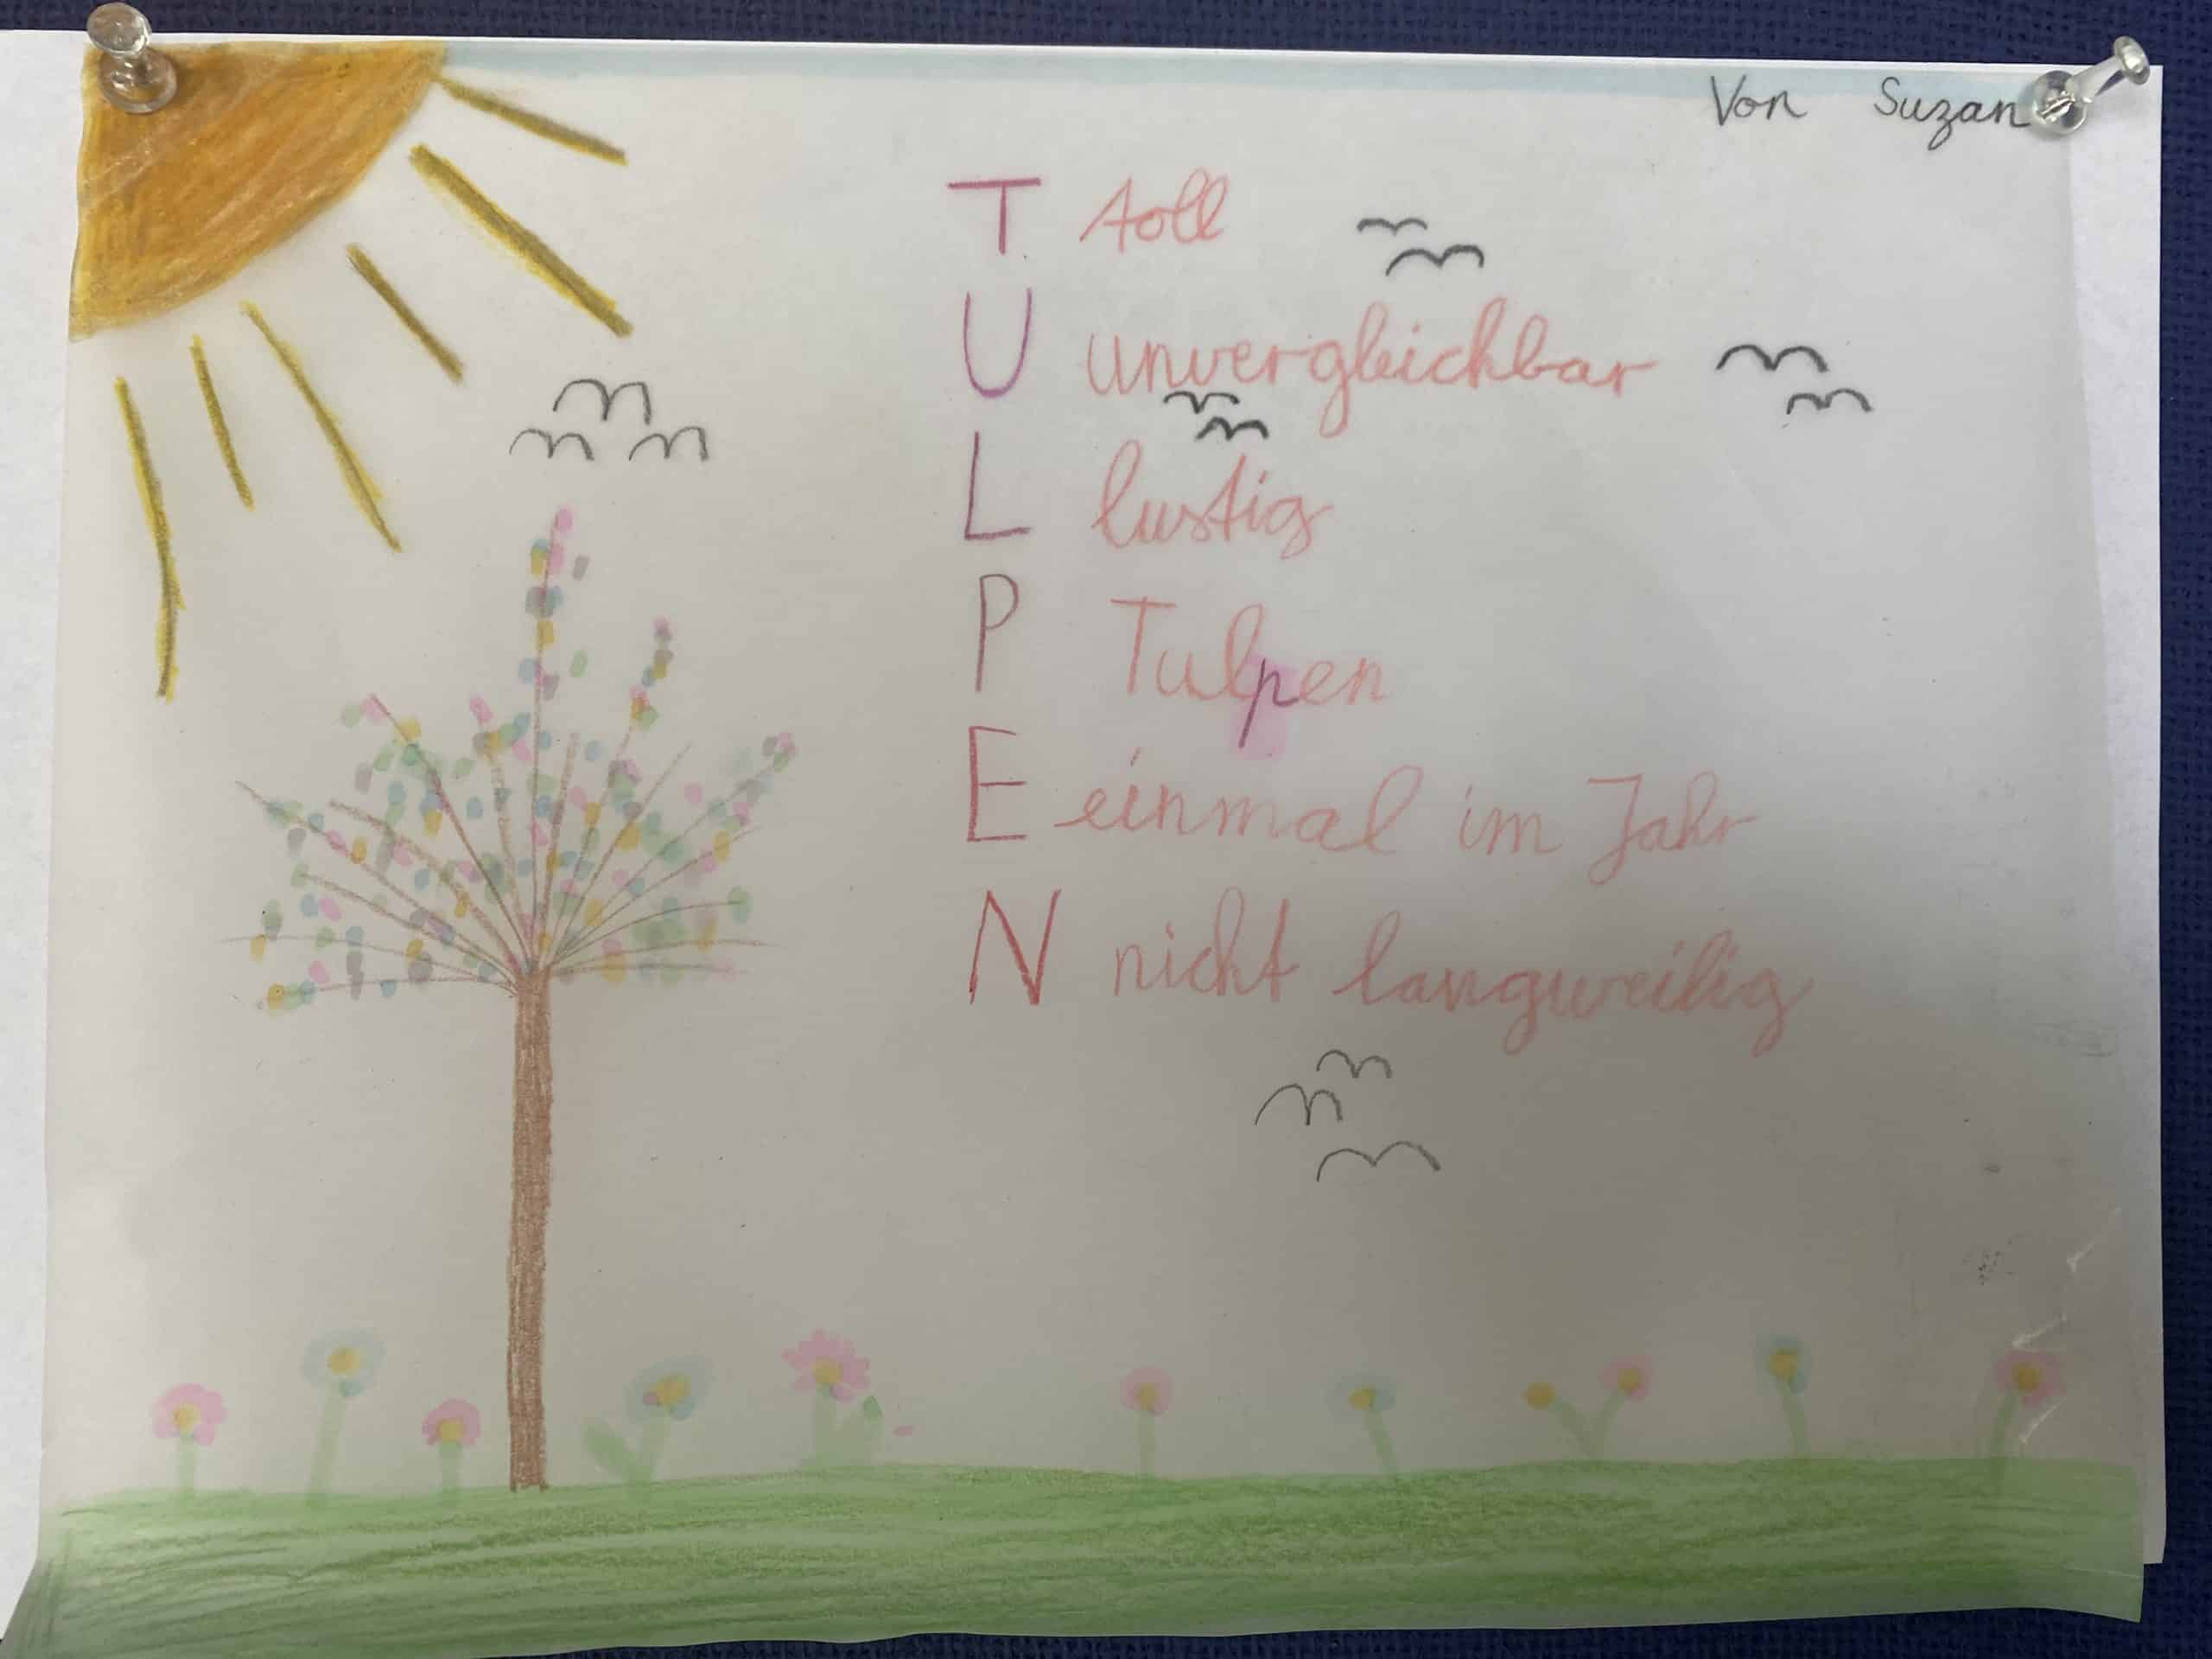 Von Suzan
T toll
U unvergleichbar
L lustig
P Tulpen
E einmal im Jahr
N nicht langweilig